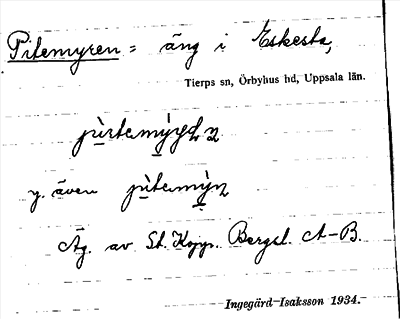 Pitemyren = äng i Eskesta,
Tierps sn, Örbyhus hd, Uppsala län.
y. även
Äg. av St. Koppr. Bergsl. A-B.
Ingegärd Isaksson 1934.